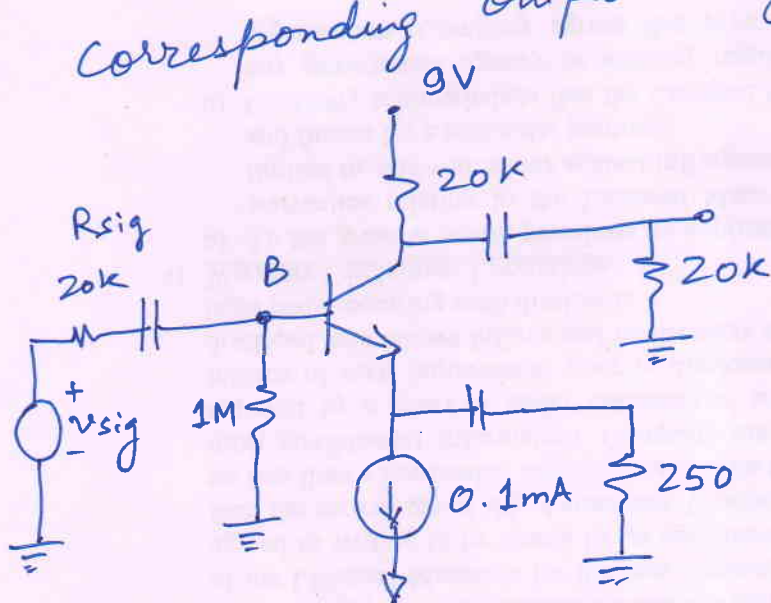 corresponding
9V
20K
Rsig
20K
B
20K
+
vsig
-
1M
0.1mA
250